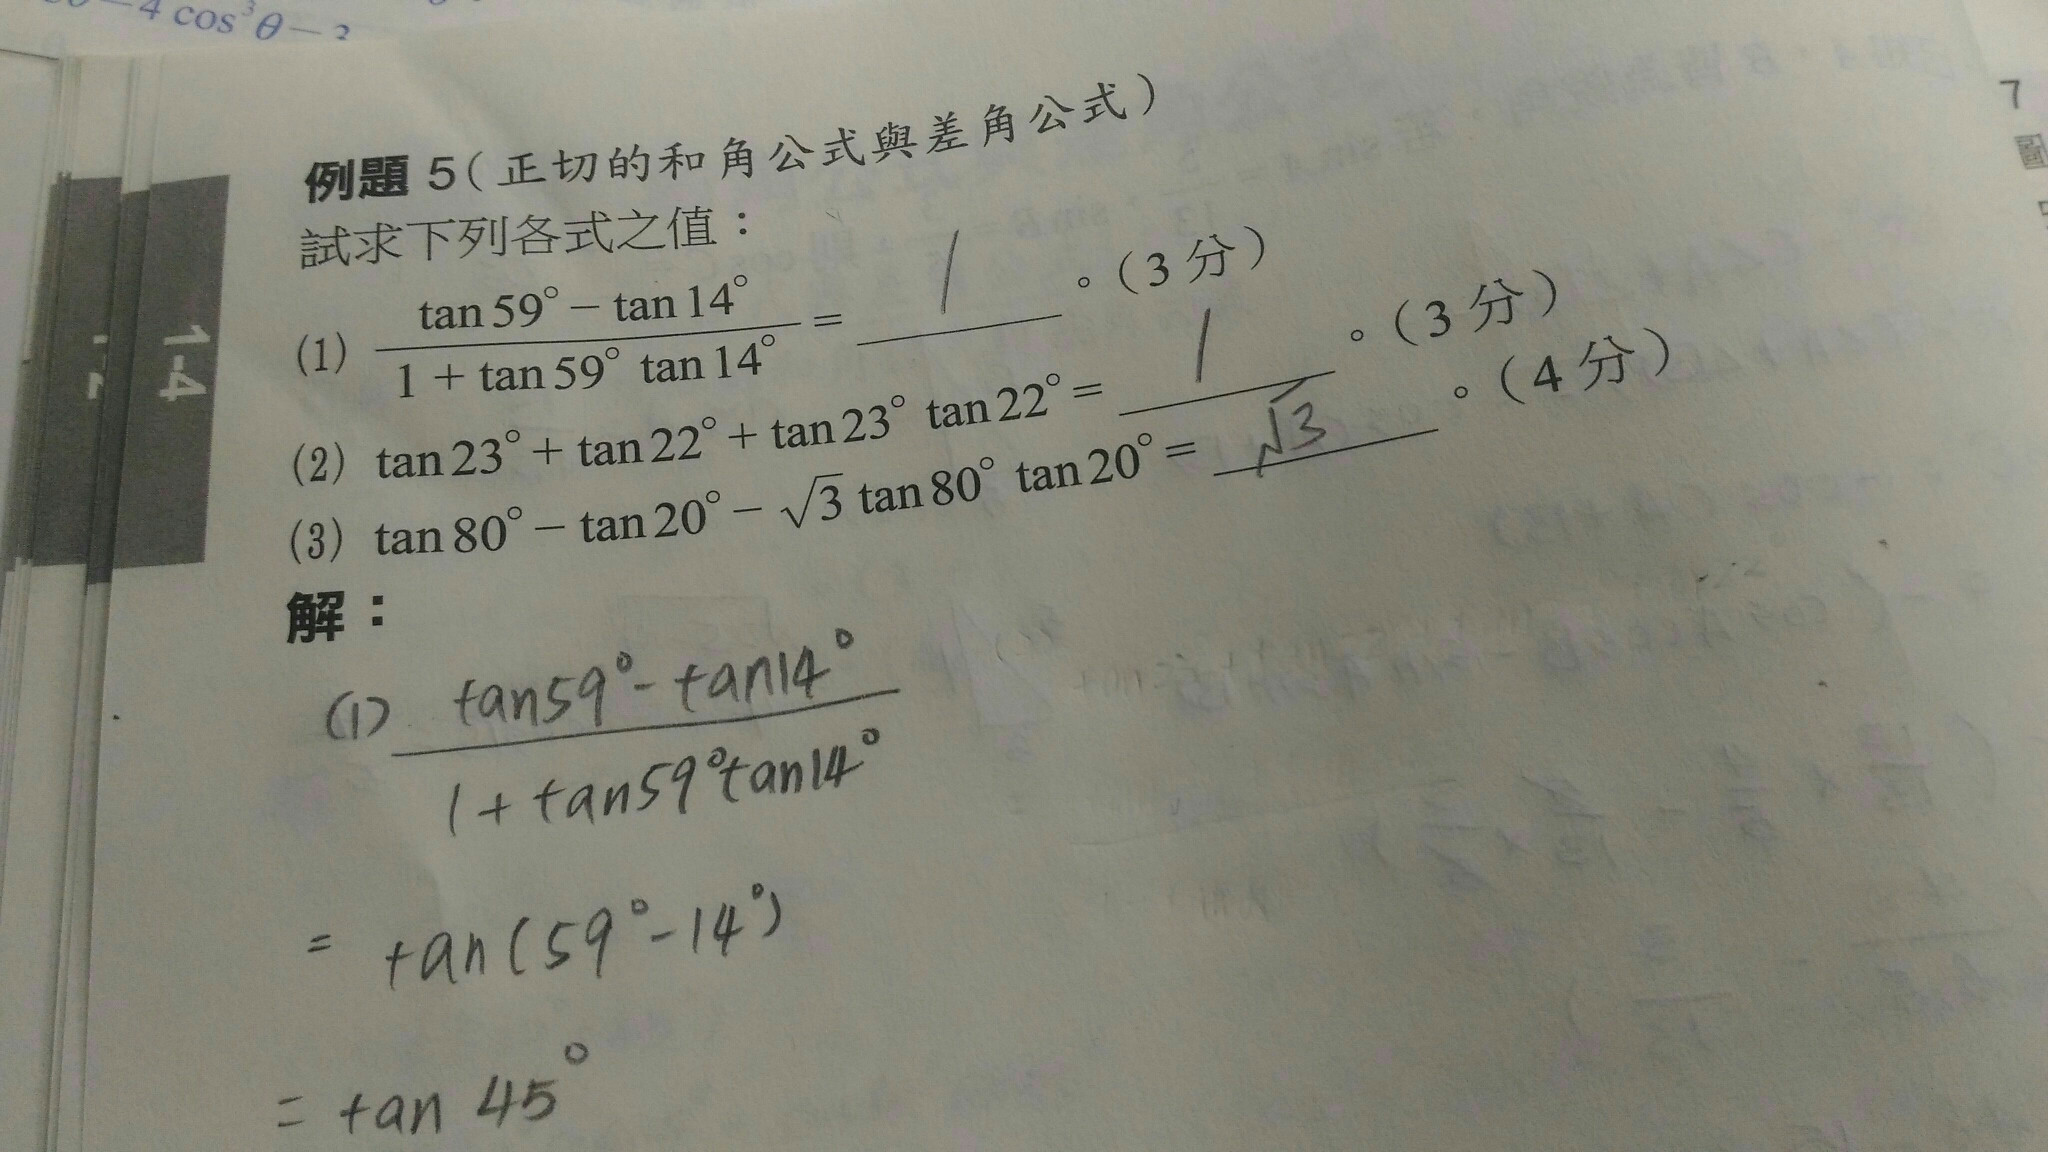 4 cos³θ－
例題 5（正切的和角公式與差角公式）
試求下列各式之值：
(1) (tan 59°－tan 14°)/(1＋tan 59° tan 14°)＝ 1 。（3 分）
(2) tan 23°＋tan 22°＋tan 23° tan 22°＝ 1 。（3 分）
(3) tan 80°－tan 20°－√3 tan 80° tan 20°＝ √3 。（4 分）
解：
(1) (tan59°-tan14°)/(1+tan59°tan14°)
= tan(59°-14°)
= tan 45°
1-4
7
圖